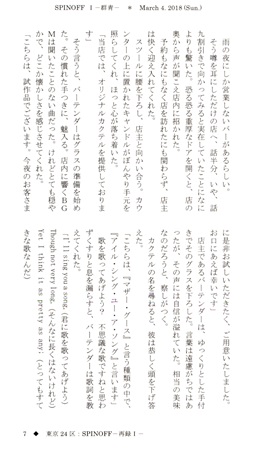 SPINOFF I－群青－　＊　March 4, 2018 (Sun.)
　雨の夜にしか営業しないバーがあるらしい。
　そう噂を耳にしただけの店へ、話半分、いや、話
九割引きで向かってみると実在していたことになに
よりも驚いた。恐る恐る重厚なドアを開くと、店の
奥から声が聞こえ店内に招かれた。
　予約もなにもなく店を訪れたにも関わらず、店主
は快く迎え入れてくれた。
　スツールに腰を下ろし、店主と向かい合う。カウ
ンターの上に置かれたキャンドルがぼんやり手元を
照らしてくれ、ほっと心が落ち着いた。
「当店では、オリジナルカクテルを提供しておりま
す」
　そう言うと、バーテンダーはグラスの準備を始め
た。その慣れた手つきに、魅入る。店内に響くＢＧ
Ｍは聞いたことのない曲だった。けれどとても穏や
かで、どこか懐かしさを感じさせてくれた。
「こちらは、試作品でございます。今夜のお客さま
に是非お試しいただきたく、ご用意いたしました。
お口にあえば幸いです」
　店主であるバーテンダーは、ゆっくりとした手付
きでそのグラスを下ろした。言葉は遠慮がちではあ
ったが、その声には自信が溢れていた。相当の美味
なのだろうと、察しがつく。
　カクテルの名を尋ねると、彼は恭しく頭を下げ答
えてくれた。
「こちらは『マザー・グース』と言う種類の中で、
『アイル・シング・ユー・ア・ソング』と言います」
　歌を歌ってあげよう？　不思議な歌ですねと思わ
ずくすりと息を漏らすと、バーテンダーは歌詞を教
えてくれた。
「I'll sing you a song,（君に歌を歌ってあげよう）
Though not very long,（そんなに長くはないけれど）
Yet I think it as pretty as any;（とってもすて
きな歌なんだ）
7　◆　東京 24 区：SPINOFF－再録 I－